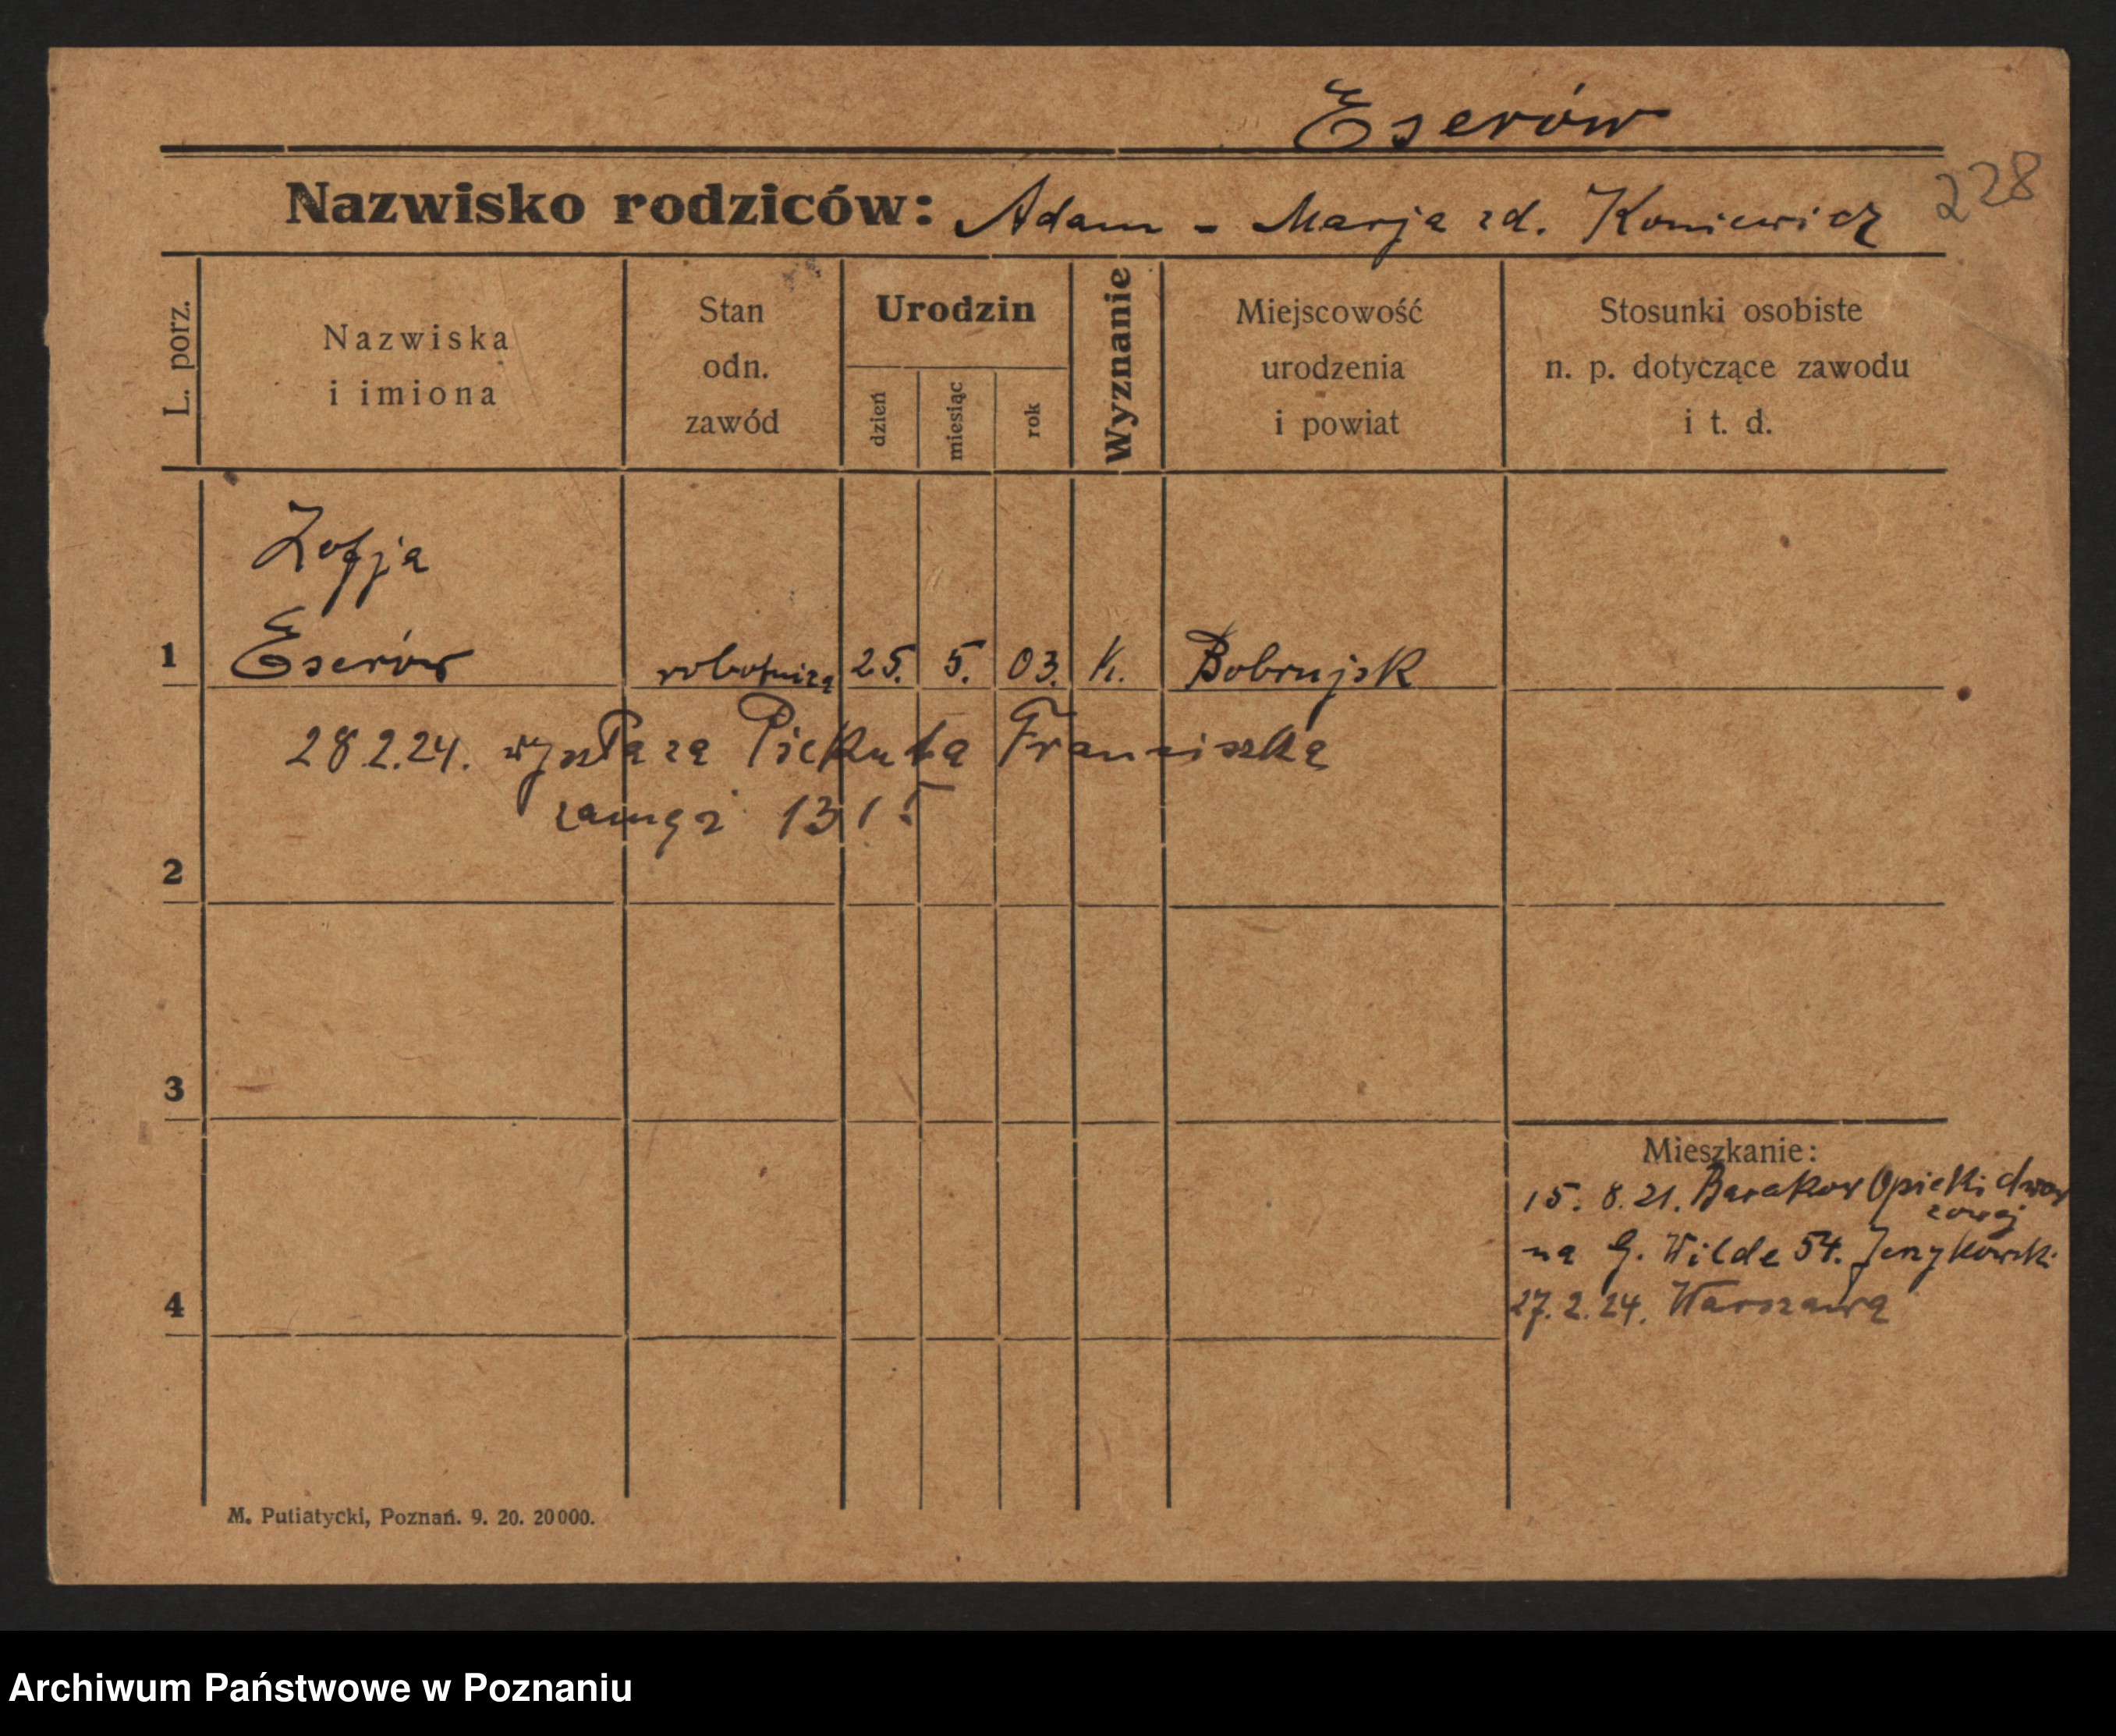 Eserów
228
Nazwisko rodziców: Adam - Marja zd. Koniewicz
L. porz.
Nazwiska i imiona
Stan odn. zawód
Urodzin
dzień
miesiąc
rok
Wyznanie
Miejscowość urodzenia i powiat
Stosunki osobiste n. p. dotyczące zawodu i t. d.
Zofja
1 Eserów robotnica 25. 5. 03. K. Bobrujsk
28.2.24. wyszła za Piekuta Franciszka
zamąż
2
3
Mieszkanie:
15. 8. 21. Barakow Opieki dwor
cowej
na G. Wilde 54. Jerzykowski
4 27. 2. 24. Warszawa
M. Putiatycki, Poznań. 9. 20. 20000.
Archiwum Państwowe w Poznaniu